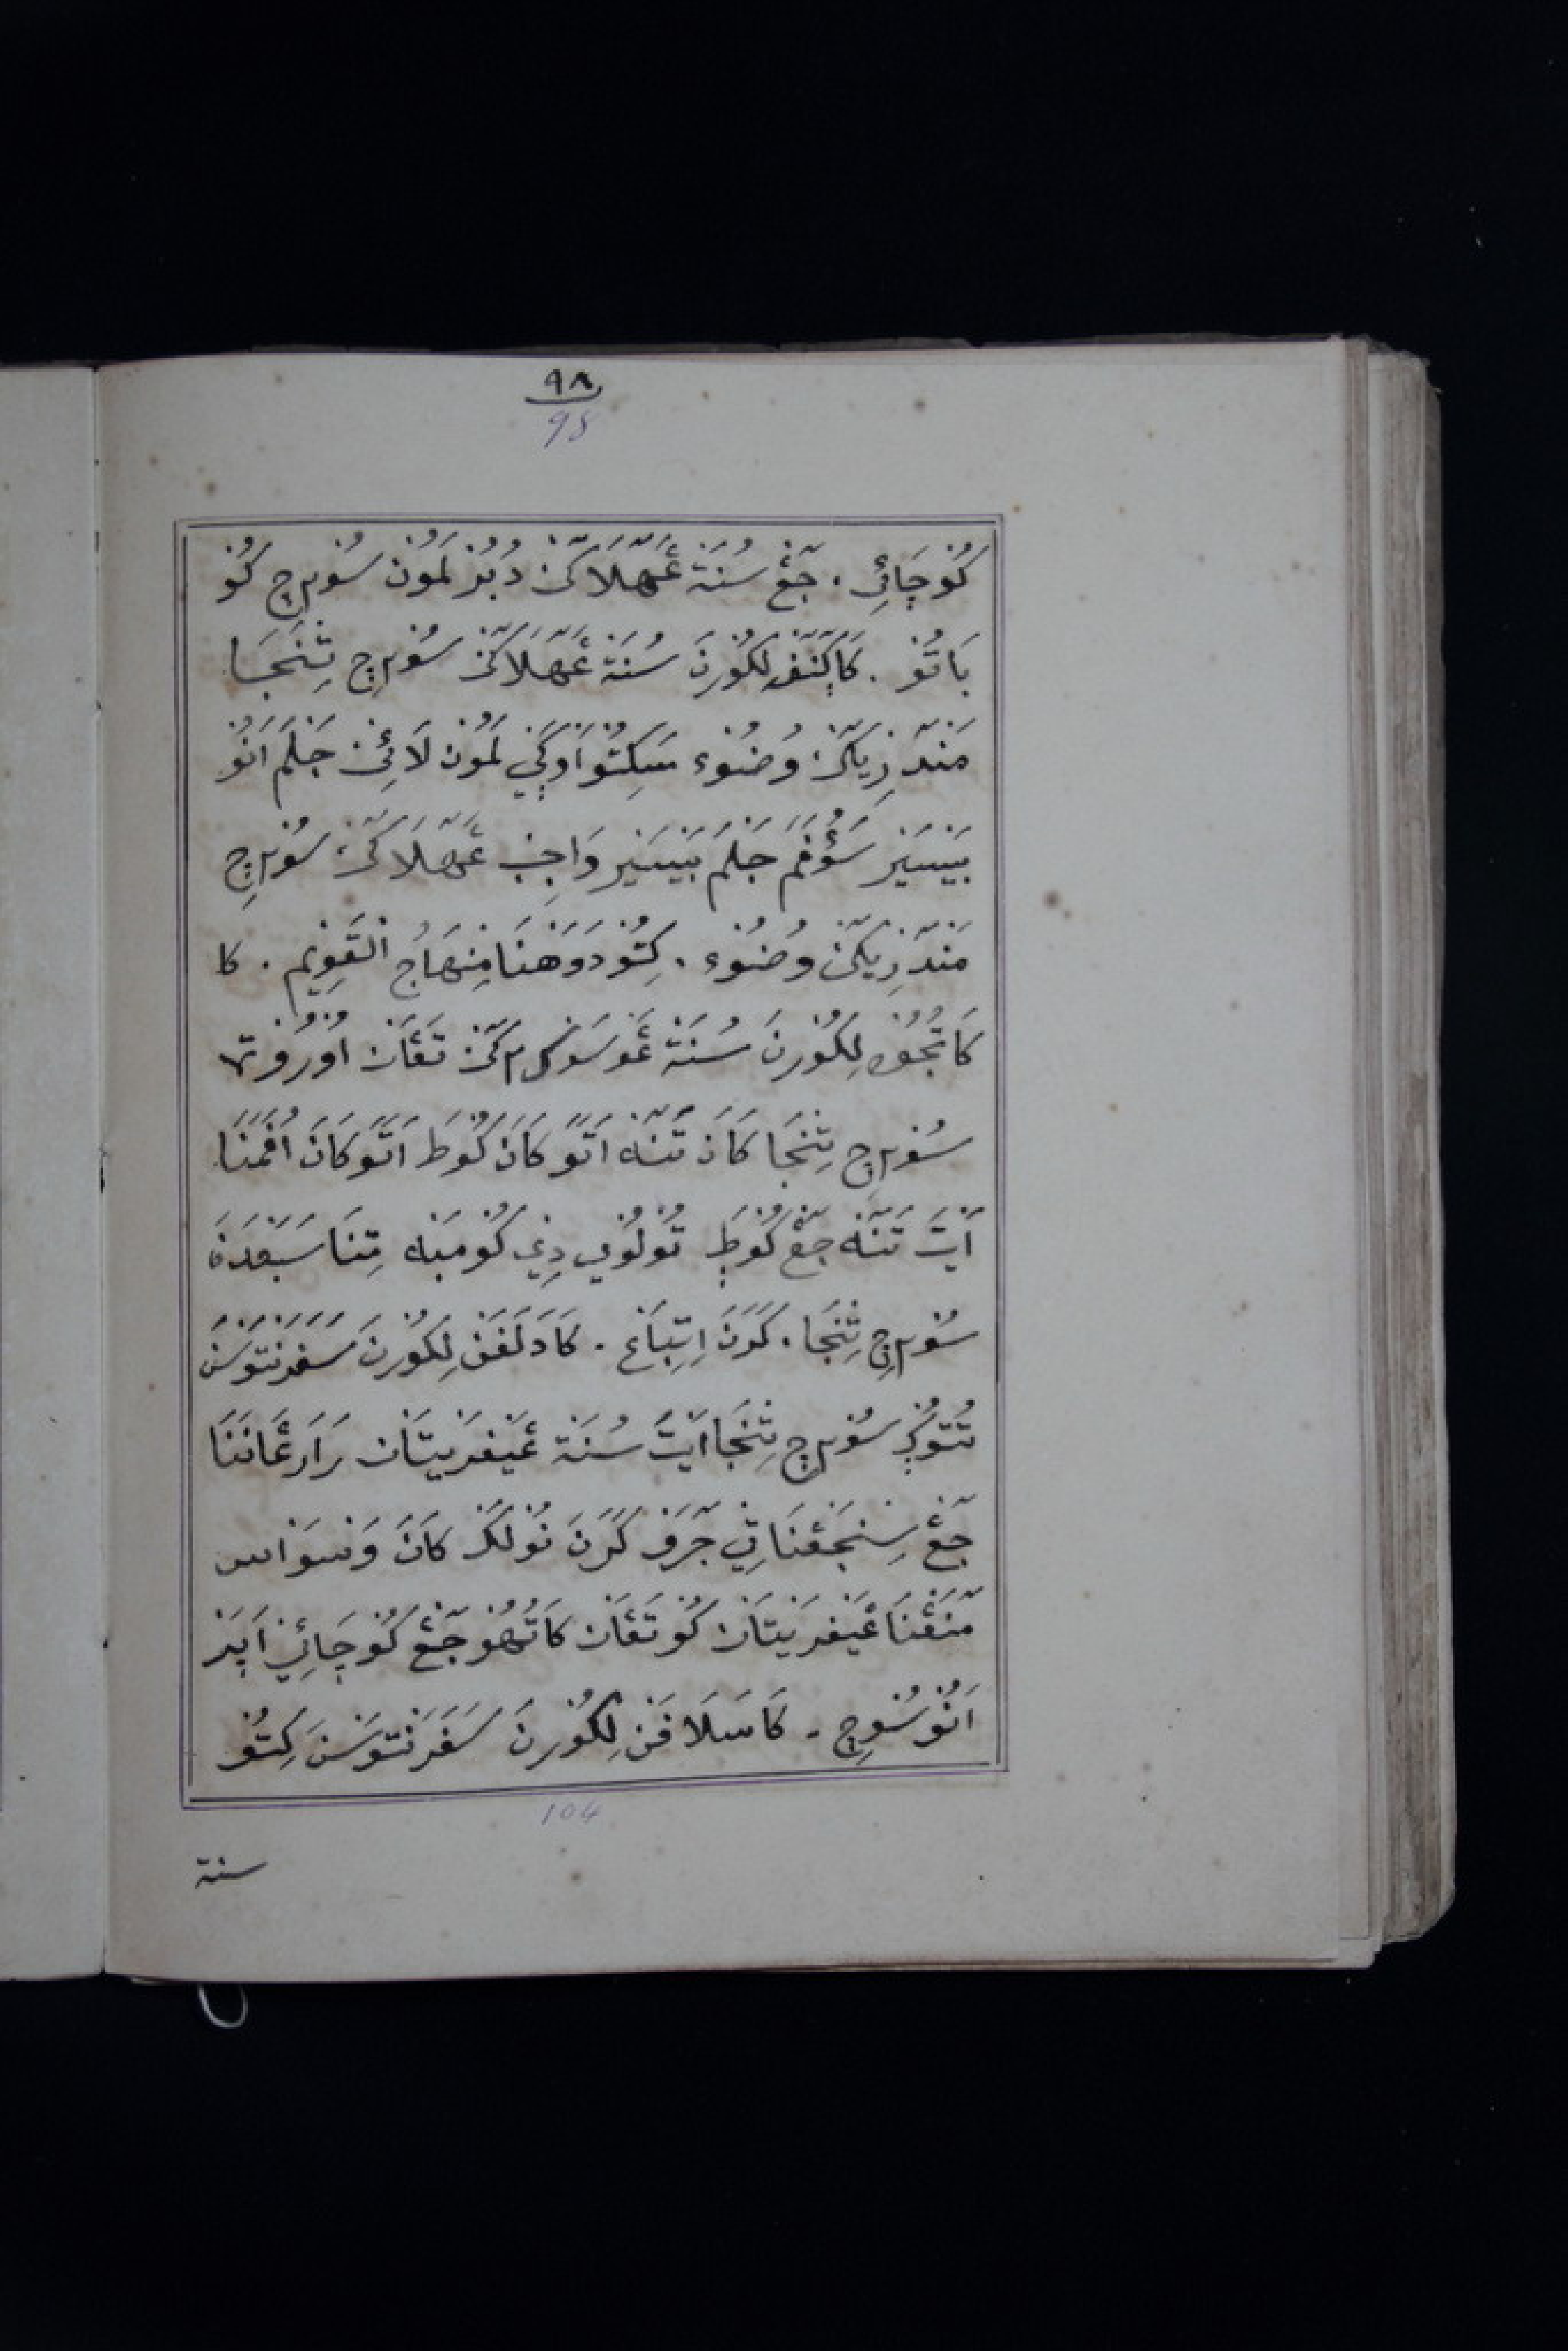 ٩٨
98
كُوْجَائِى. جٓغْ سُنَة غَهَلَاكَنْ دُبُرْ لَمُوْن سُوْرِچ كُوْ
بَاتُوْ. كَاكٓنٓفْ لِكُوْرنَ سُنَة غَهَلَاكَنْ سُوْرِچ تِنْجَا
مَنْدٓرِيَاكَنْ وُضُوْء سَكِتُوْ اَوْكَيْ لَمُوْن لَائِنْ جَلَمَ اَنُوْ
بَيْسَيْر سَؤُفَمَ جَلَمَ بَيْسَيْر وَاجِبْ غَهَلَاكَنْ سُوْرِچ
مَنْدٓرِيَكَنْ وُضُوْء. كِتُوْ دَوُهْنَا مِنْهَاجُ الْقَوِيْم. كا
كَاتُجُوْه لِكُوْرنَ سُنَة غَوْسَوْكَرَكَنْ تَغَان اُوْرُوْت٢
سُوْرِچ تِنْجَا كَانَ تَنَهْ اَتَوَ كَانَ كُوْطَ اَتَوَ كَانَ اُفَمَنَا
اَيْتَ تَنَهْ جٓغْ كُوْطَ تُوْلُوْيْ دِيْ كُوْمبَهْ تِنَا سَبَعْدَنَ
سُوْرِچ تِنْجَا. كَرَنَ اِتِّبَاع. كَادَلَفَنْ لِكُوْرنَ سَفَرَنْتَوْسَنَ
تُتُوْكْ سُوْرِچ تِنْجَا اَيْتَ سُنَة غَيْفَرَيْتَان رَارَغَانَنَا
جٓغْ سِنْجَغْنَا تِيْ جَرَفْ كَرَنَ نُوْلَكْ كَانَ وَسْوَاس
مَنَغْنَا غَيْفَرَيْتَان كُوْ تَغَان كَاتُهُوْ جٓغْ كُوْجَائِيْ اَيَرْ
اَنُوْ سُوْچِ. كَاسَلَافَنْ لِكُوْرنَ سَفَرَنْتَوْسَنَ كِتُوْ
104
سنة